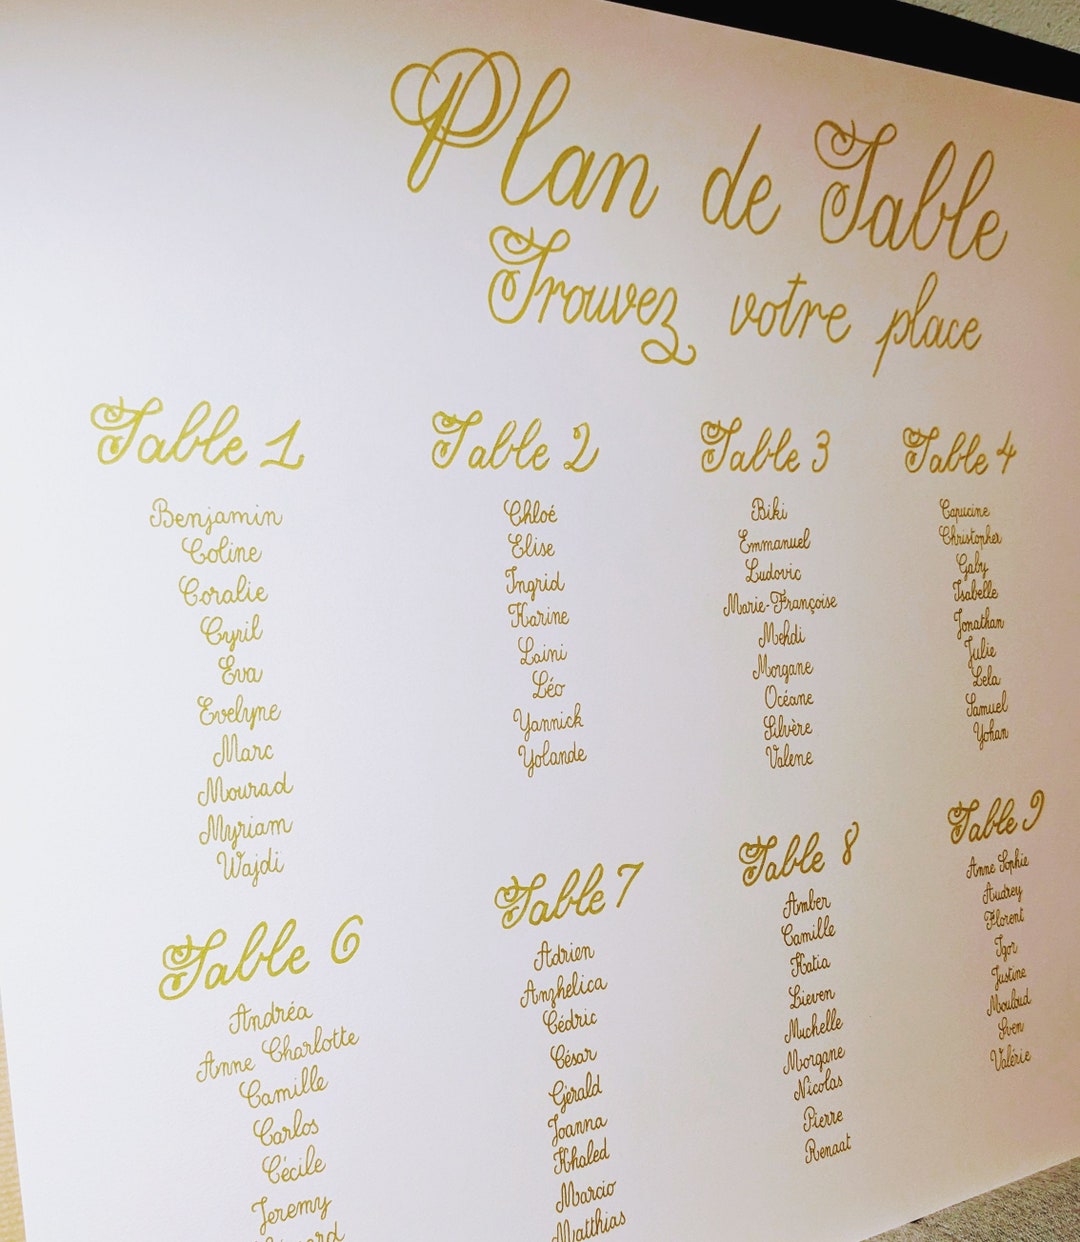 Plan de Table
Trouvez votre place
Table 1
Benjamin
Coline
Coralie
Cyril
Eva
Evelyne
Marc
Mourad
Myriam
Wajdi
Table 2
Chloé
Elise
Ingrid
Karine
Laini
Léo
Yannick
Yolande
Table 3
Biki
Emmanuel
Ludovic
Marie-Françoise
Mehdi
Morgane
Océane
Silvère
Valene
Table 4
Capucine
Christopher
Gaby
Isabelle
Jonathan
Julie
Lela
Samuel
Yohan
Table 6
Andréa
Anne Charlotte
Camille
Carlos
Cécile
Jeremy
Table 7
Adrien
Anzhelica
Cédric
César
Gérald
Joanna
Khaled
Marcio
Matthias
Table 8
Amber
Camille
Katia
Lieven
Michelle
Morgane
Nicolas
Pierre
Renaat
Table 9
Anne Sophie
Audrey
Florent
Igor
Justine
Mouloud
Sven
Valérie